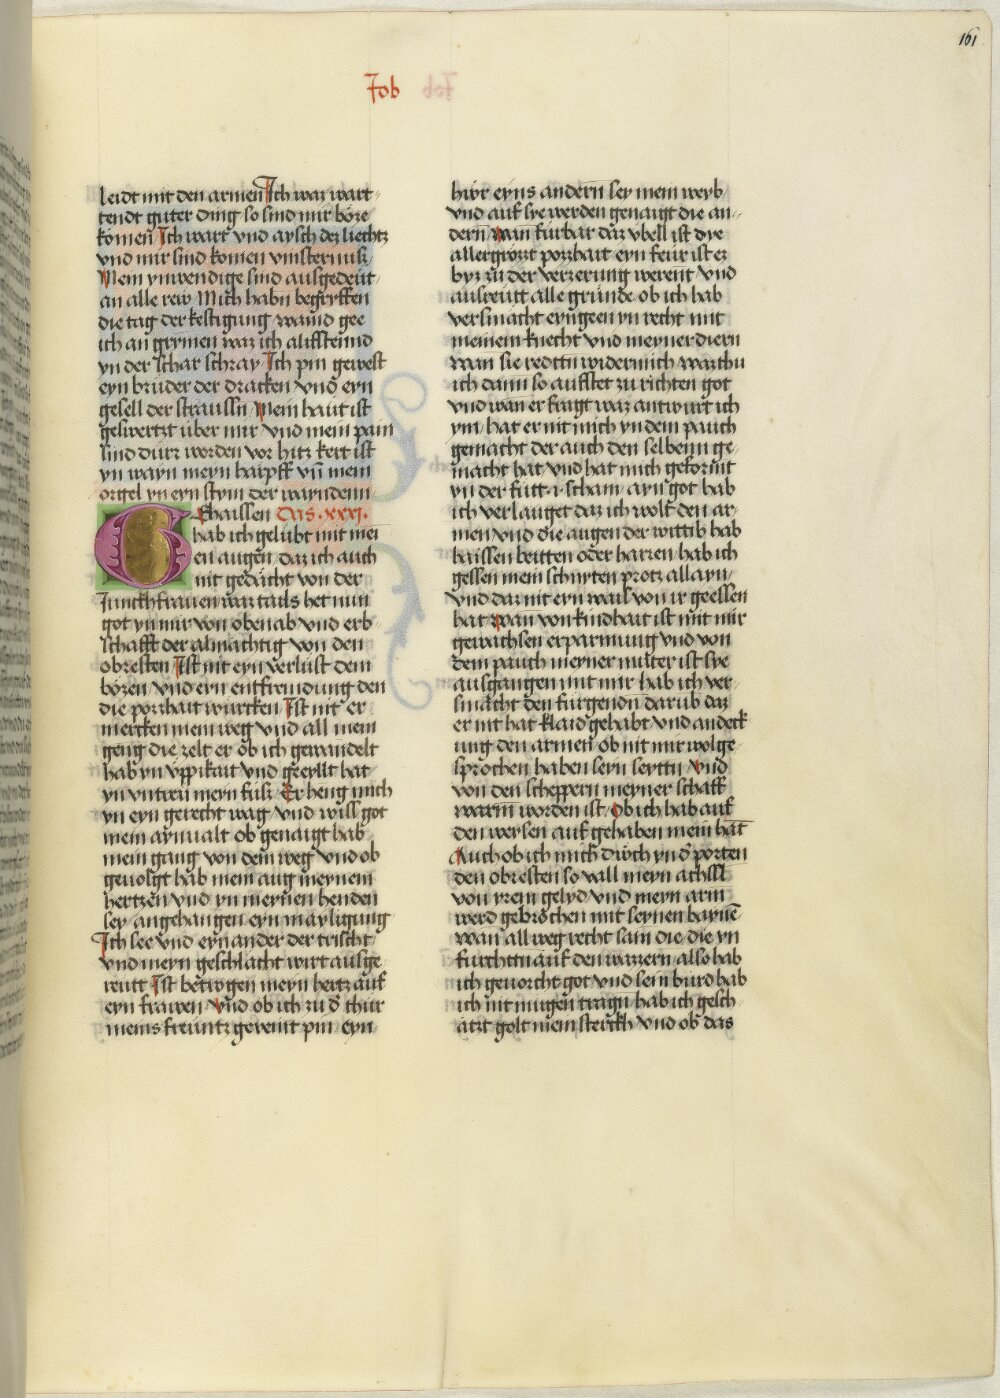 161
Job
leidt mit den armen Ich waz wart
tendt guter ding so sind mir böze
komen Ich wart vnd aysch dez liechtz
vnd mir sind komen vinsternusz
Mein ynwendige sind ausgedent
an alle rew Mich habn begryffen
die tag der kestigung waind gee
ich an grymen waz ich auffsteind
yn der schar schray Ich pin gewest
eyn bruder der dracken vnd eyn
gesell der straussn Mein haut ist
geswertzt über mir vnd mein pain
sind dürz worden vor hitz kert ist
yn wayn meyn harpff vn mein
orgel yn eyn stym der wayndenn
Ghaissen Cas. xxxi.
hab ich gelübt mit mei
en augen daz ich auch
nit gedächt von der
Junckhfrauen waz tails het nun
got yn mir von oben ab vnd erb
schafft der almächtig von den
obresten Ist nit eyn verlust dem
bözen vnd eyn entfremdung den
die pozzhait wurcken Ist nit er
mercken mein weg vnd all mein
geng die zelt er ob ich gewandelt
hab yn vppikait vnd geeyllt hat
yn vntreu meyn fusz Er heng mich
yn eyn gerecht wag vnd wiss got
mein aynualt ob genaigt hab
mein gang von dem weg vnd ob
geuolgt hab mein aug meynem
hertzen vnd yn meynen henden
sey angehangen eyn mayligung
Ich see vnd eyn ander der trischt
vnd meyn geschlächt wirt ausge
reutt Ist betrogen meyn hertz auf
eyn frawen vnd ob ich zu d thür
meins freuntz gevemt pin eyn
hür eyns andern sey mein weyb
vnd auf sye werden genaigt die an
dern wan fürbar daz vbell ist dye
allergrözzt pozzhait eyn feur ist ez
byz zu der verzerung werent vnd
ausreutt alle gründe ob ich hab
versmächt eyngeen yn recht mit
meinem knecht vnd meyner diern
wan sie redttn wider mich waz thu
ich dann so aufstet zu richten got
vnd wan er fragt waz antwurt ich
ym hat er nit mich yn dem pauch
gemacht der auch den selbenn ge
macht hat vnd hat mich geformt
yn der futt .i. scham ayn got hab
ich verlauget daz ich wolt den ar
men vnd die augen der wittib hab
haissen beitten oder harzen hab ich
gessen mein schnyten protz allayn
vnd daz nit eyn wais von ir geessen
hat wan von kindhait ist mit mir
gewachsen erparmung vnd von
dem pauch meyner müter ist sye
ausgangen mit mir hab ich ver
smächt den fürgendn darüb daz
er nit hat klaid gehabt vnd andeck
ung den armen ob nit mir wolge
sprochen haben seyn seyttn vnd
von den scheppern meyner schaff
warm worden ist ob ich hab auf
den weysen auf gehaben mein hat
Auch ob ich mich dwch yn d porten
den obresten so vall meyn achssl
von yrem gelyd vnd meyn arm
werd gebrochen mit seynen bayne
wan all weg recht sam die die yn
fürchttn auf den wazzern also hab
ich geuorcht got vnd sein burd hab
ich nit mugen tragn hab ich gesch
ätzt golt mein sterckh vnd ob das